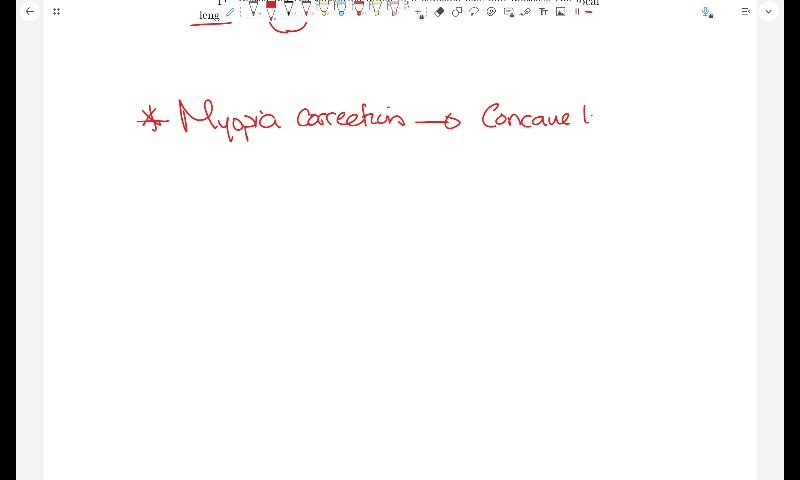 leng
* Myopia correction → Concave l